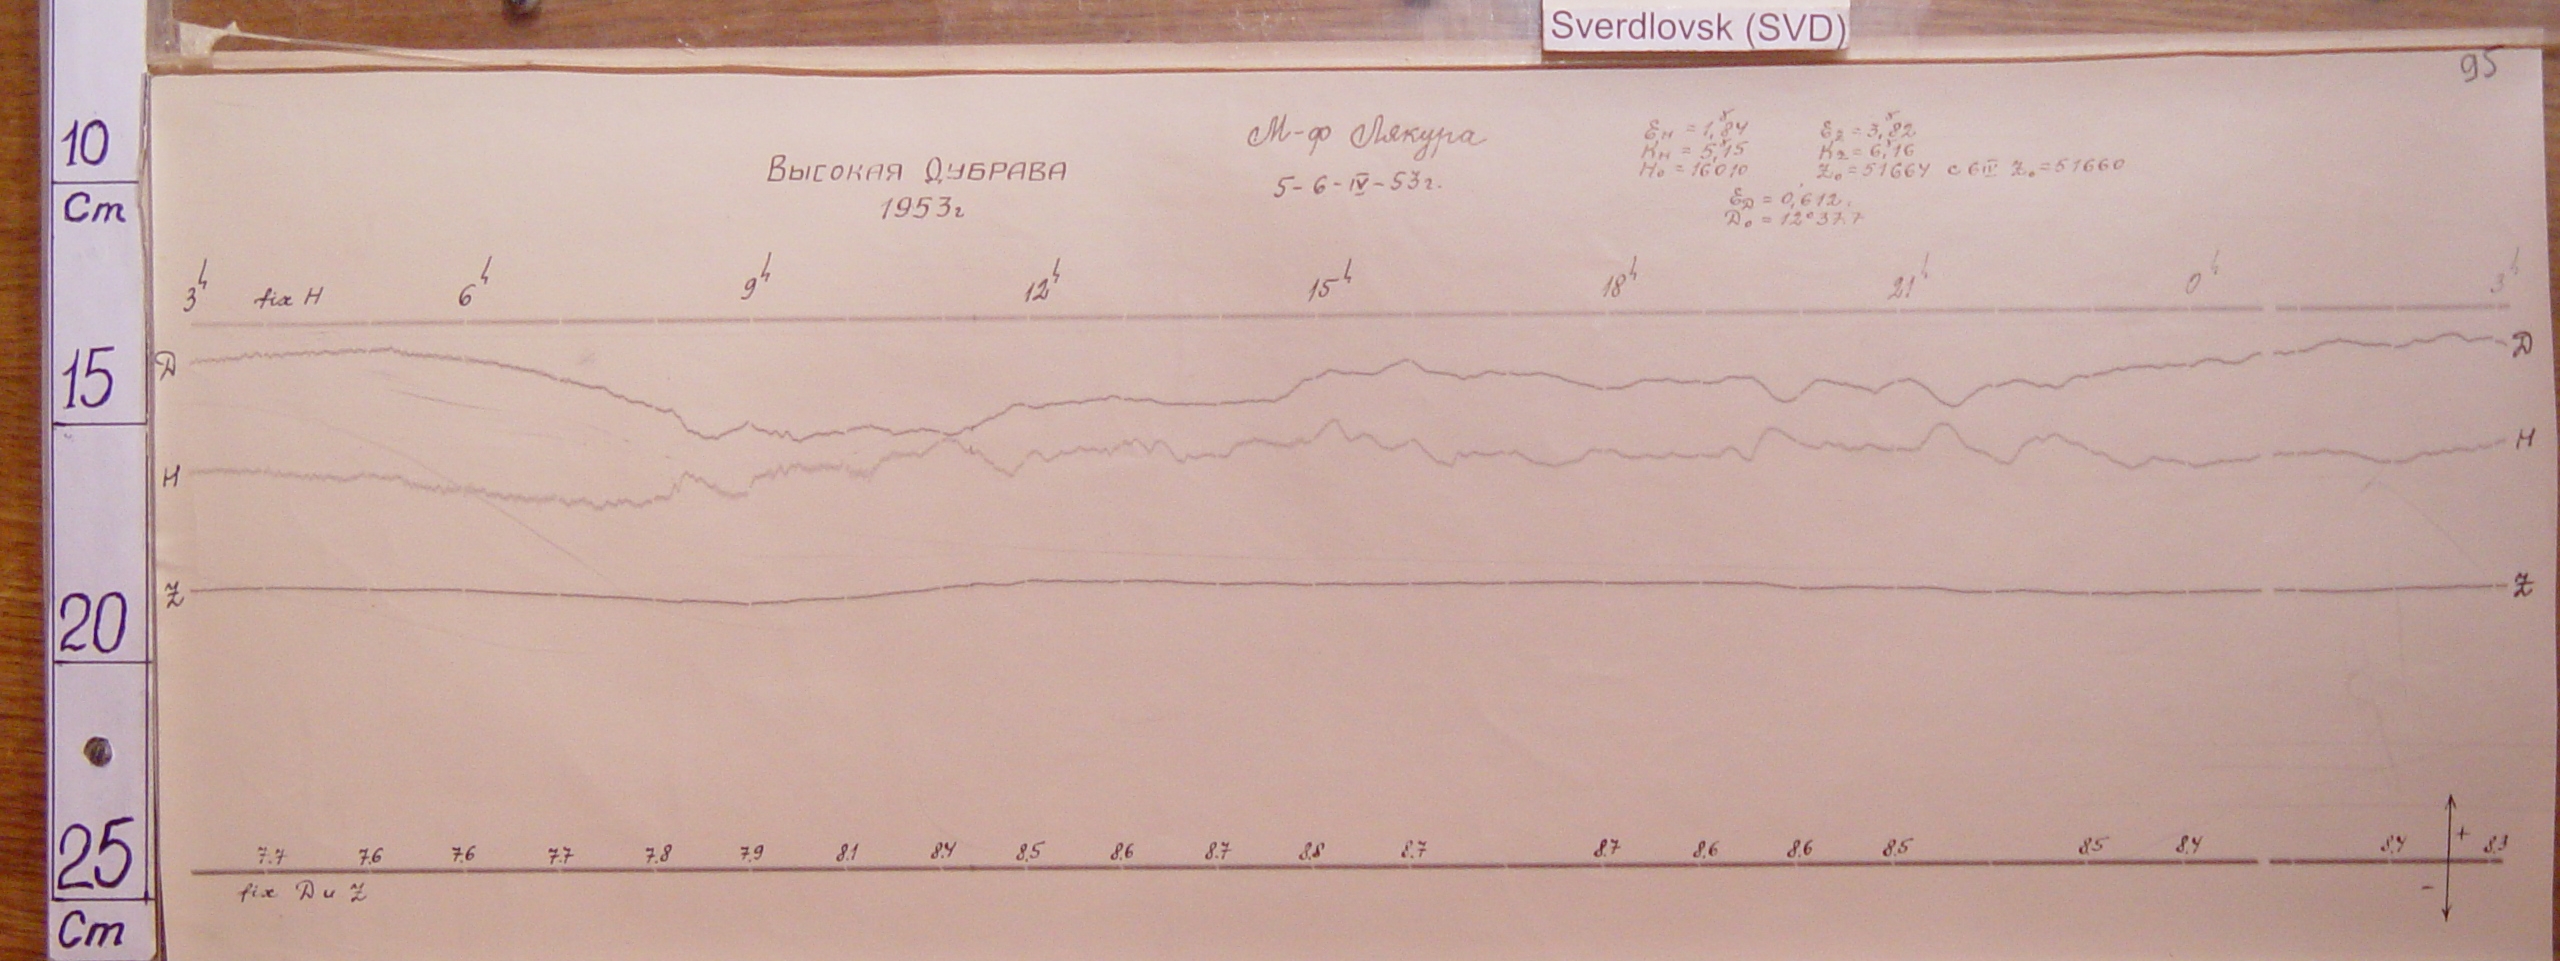 Sverdlovsk (SVD)
95
10
Cm
15
20
25
Cm
Высокая Дубрава
1953г
М-ф Лякура
5-6-IV-53г.
Ɛн = 1,84
Kн = 5,15
H₀ = 16010
Ɛz = 3,82
Kz = 6,16
Z₀ = 51664 с 6 IV Z₀ = 51660
ƐD = 0,612
D₀ = 12°37.7
3h fix H 6h 9h 12h 15h 18h 21h 0h 3h
D D
H H
Z Z
7.7 7.6 7.6 7.7 7.8 7.9 8.1 8.4 8.5 8.6 8.7 8.8 8.7 8.7 8.6 8.6 8.5 8.5 8.4 8.4 8.3
+
-
fix D и Z